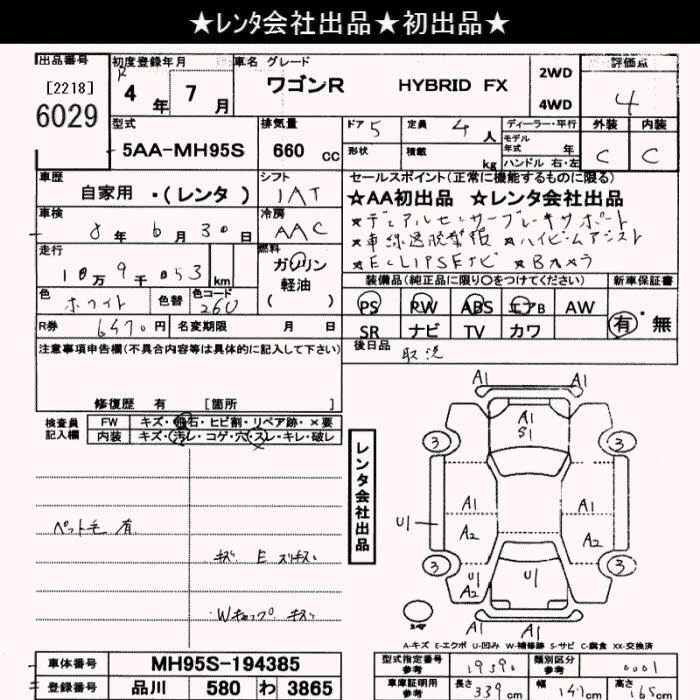 ★レンタ会社出品★初出品★
出品番号 初度登録年月 車名 グレード 評価点
[2218] R 4年 7月 ワゴンR HYBRID FX 2WD 4
6029 4WD
型式 排気量 ドア 5 定員 4人 ディーラー・平行 外装 内装
5AA-MH95S 660cc 形状 積載 kg モデル年式 年 C C
ハンドル 右・左
車歴 シフト セールスポイント(正常に機能するものに限る)
自家用 ・(レンタ) IAT ★AA初出品 ★レンタ会社出品
車検 冷房 ★デュアルセンサーブレーキサポート
8年6月30日 AAC ★車線逸脱警報 ★ハイビームアシスト
走行 燃料 ★ECLIPSEナビ ★Bカメラ
10万9千053km ガソリン
軽油
( )
装備品(純正品に限り○をつけてください) 新車保証書
色 ホワイト 色替 色コード 26U PS PW ABS エアB AW 有・無
R券 6470円 名変期限 月 日 SR ナビ TV カワ
注意事項申告欄(不具合内容等は具体的に記入して下さい) 後日品 取説
修復歴 有 [箇所 ]
検査員記入欄 FW キズ・飛石・ヒビ割・リペア跡・×要
内装 キズ・汚レ・コゲ・穴・スレ・キレ・破レ
レンタ会社出品
ペット毛 有
キズ E スリキズ
Wキャップ キズ
A1
A1
S1
3 3
A1 A1
U1 A2 A2
3 3
U1
A2
U1
A1
A-キズ E-エクボ U-凹み W-補修跡 S-サビ C-腐食 XX-交換済
車体番号 MH95S-194385 型式指定番号 参考 19390 類別区分 参考 0001
登録番号 品川 580 わ 3865 車庫証明用 参考 長さ 339cm 幅 147cm 高さ 165cm